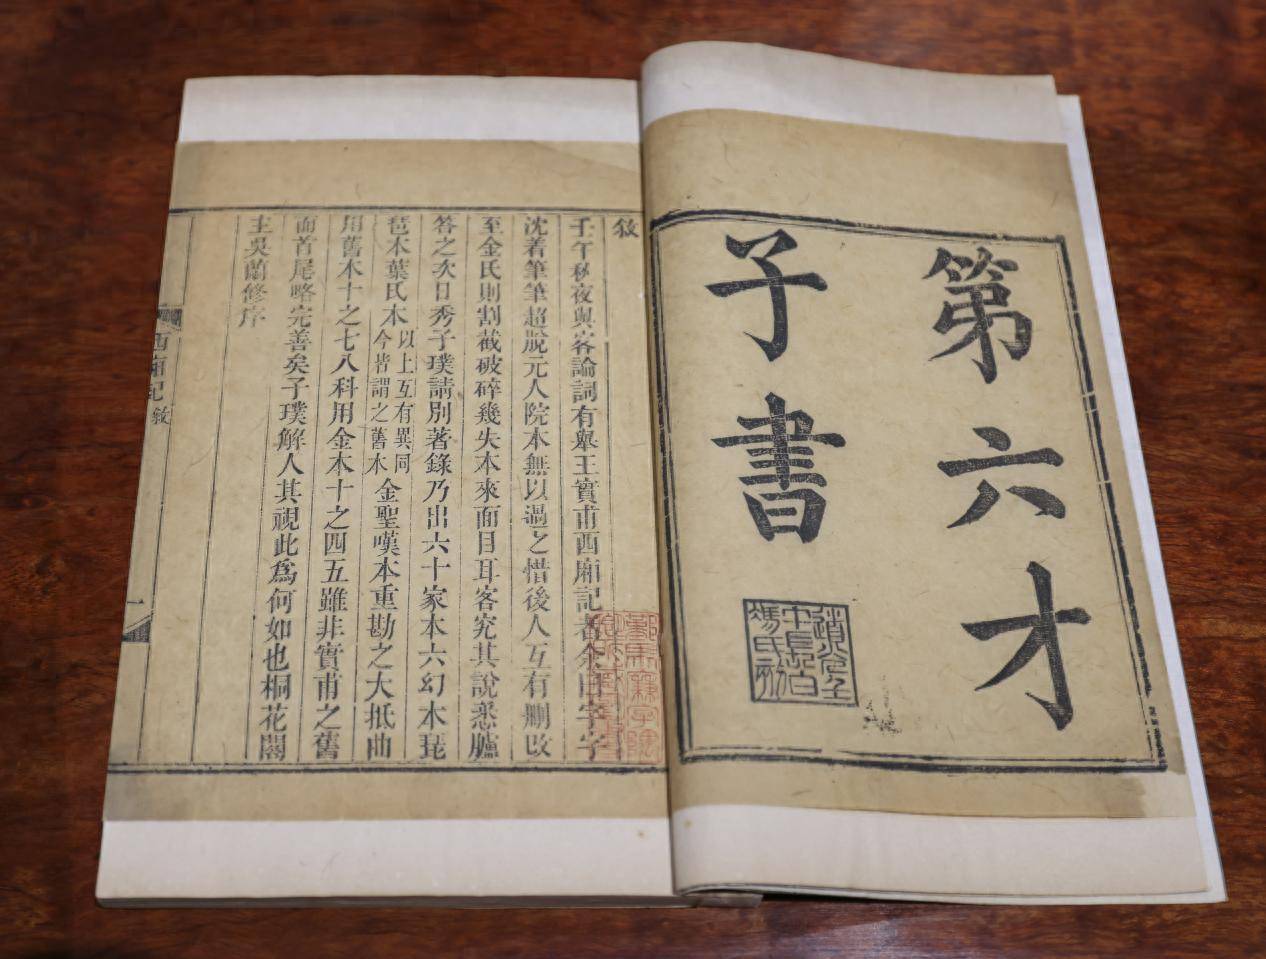 第六才
子書
敘
壬午秋夜與客論詞有舉王實甫西廂記者余曰字字
沈着筆筆超脫元人院本無以過之惜後人互有刪改
至金氏則割截破碎幾失本來面目耳客究其說悉臚
答之次日秀子璞請別著錄乃出六十家本六幻本琵
琶本葉氏本以上互有異同今皆謂之舊本金聖嘆本重勘之大抵曲
用舊本十之七八科用金本十之四五雖非實甫之舊
而首尾略完善矣子璞解人其視此為何如也桐花閣
主吳蘭修序
西廂記 敘
一